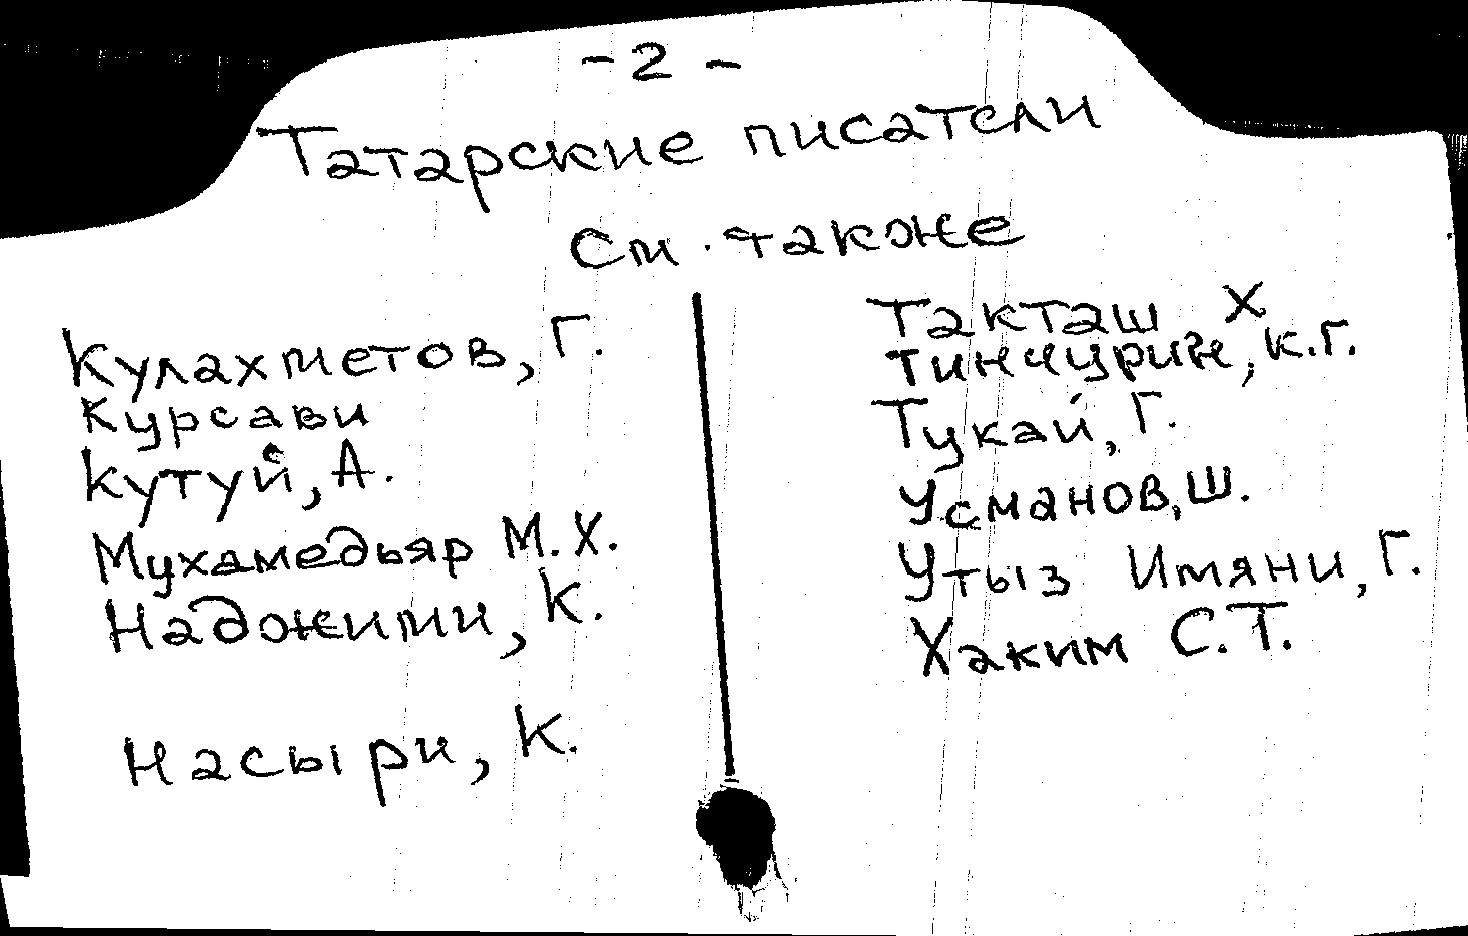 - 2 -
Татарские писатели
См. также
Кулахметов, Г.
Курсави
Кутуй, А.
Мухамедьяр М.Х.
Наджими, К.
Насыри, К.
Такташ Х
Тинчурин, К.Г.
Тукай, Г.
Усманов, Ш.
Утыз Имяни, Г.
Хаким С.Т.